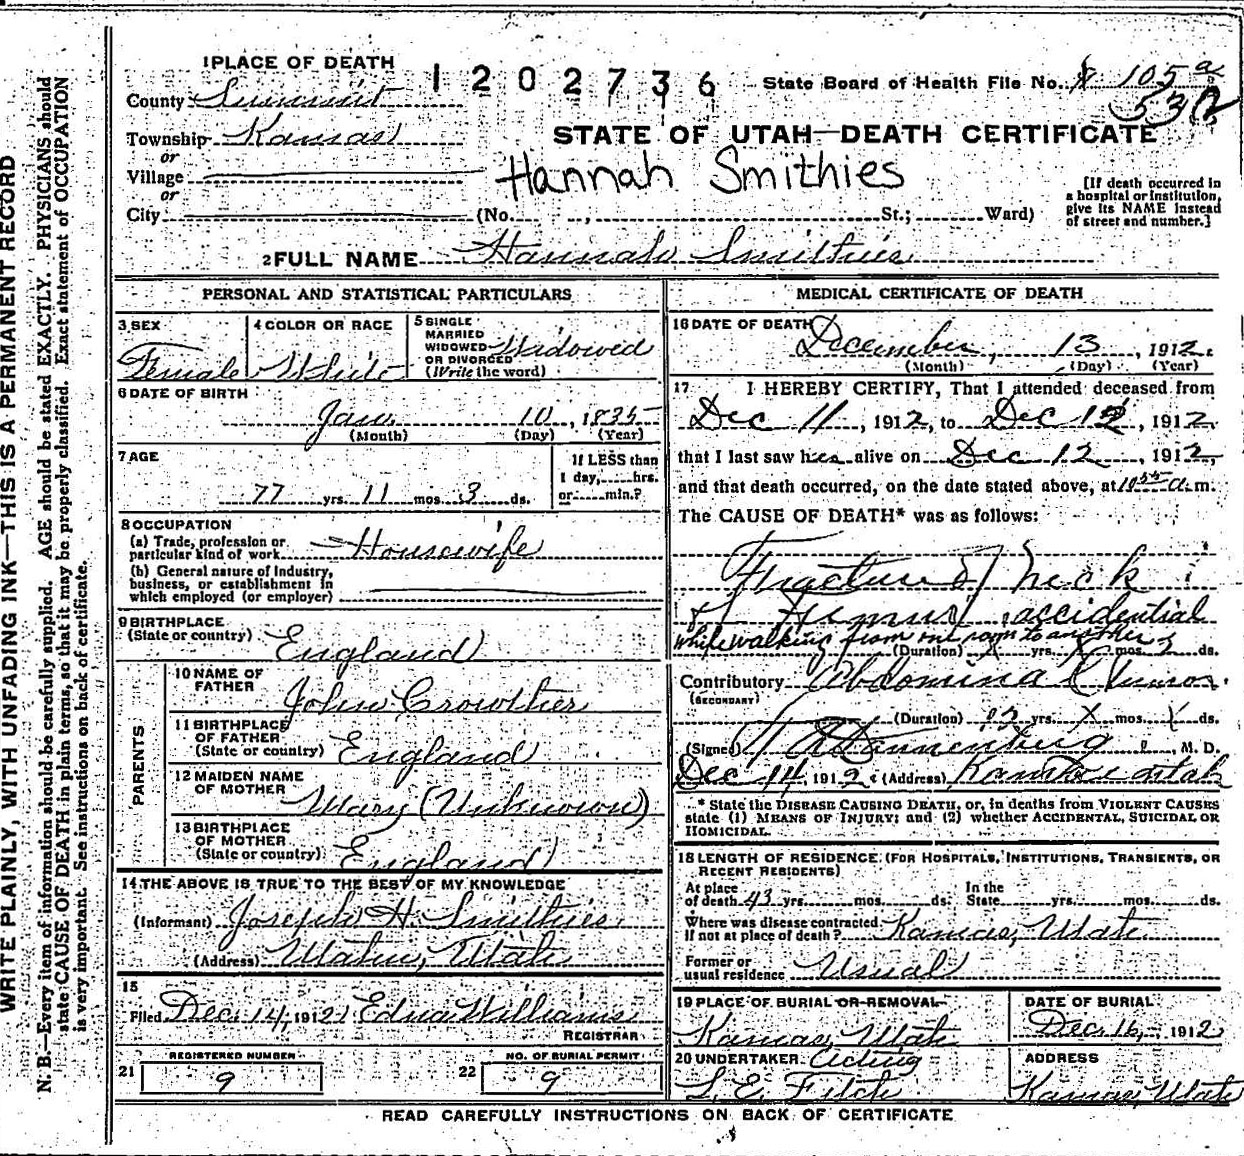 1 PLACE OF DEATH
1202736
State Board of Health File No. 105 a
County Summit
53
Township Kamas
STATE OF UTAH—DEATH CERTIFICATE
or
Village
Hannah Smithies
or
City (No. , St.; Ward)
[If death occurred in a hospital or institution, give its NAME instead of street and number.]
2 FULL NAME Hannah Smithies
PERSONAL AND STATISTICAL PARTICULARS
3 SEX
Female
4 COLOR OR RACE
White
5 SINGLE
MARRIED
WIDOWED
OR DIVORCED
(Write the word)
Widowed
6 DATE OF BIRTH
Jan. 10, 1835
(Month) (Day) (Year)
7 AGE
77 yrs. 11 mos. 3 ds.
If LESS than
1 day, hrs.
or min.?
8 OCCUPATION
(a) Trade, profession or
particular kind of work Housewife
(b) General nature of industry,
business, or establishment in
which employed (or employer)
9 BIRTHPLACE
(State or country) England
PARENTS
10 NAME OF
FATHER John Crowther
11 BIRTHPLACE
OF FATHER
(State or country) England
12 MAIDEN NAME
OF MOTHER Mary (Unknown)
13 BIRTHPLACE
OF MOTHER
(State or country) England
14 THE ABOVE IS TRUE TO THE BEST OF MY KNOWLEDGE
(Informant) Joseph H. Smithies
(Address) Utah
15
Filed Dec. 14, 1912 Edna Williams
REGISTRAR
REGISTERED NUMBER
21 9
NO. OF BURIAL PERMIT
22 9
MEDICAL CERTIFICATE OF DEATH
16 DATE OF DEATH
December, 13, 1912.
(Month) (Day) (Year)
17 I HEREBY CERTIFY, That I attended deceased from
Dec 11, 1912, to Dec 12, 1912,
that I last saw her alive on Dec 12, 1912,
and that death occurred, on the date stated above, at 10 a.m.
The CAUSE OF DEATH* was as follows:
Fracture of neck
of Femur accidential
while walking from one room to another
(Duration) yrs. mos. 2 ds.
Contributory Abdominal Tumor.
(SECONDARY)
(Duration) 12 yrs. X mos. X ds.
(Signed) , M. D.
Dec 14, 1912 (Address) Utah
* State the DISEASE CAUSING DEATH, or, in deaths from VIOLENT CAUSES
state (1) MEANS OF INJURY; and (2) whether ACCIDENTAL, SUICIDAL OR
HOMICIDAL.
18 LENGTH OF RESIDENCE (FOR HOSPITALS, INSTITUTIONS, TRANSIENTS, OR
RECENT RESIDENTS)
At place
of death 43 yrs. mos. ds.
In the
State yrs. mos. ds.
Where was disease contracted
If not at place of death? Kamas, Utah
Former or
usual residence Usual
19 PLACE OF BURIAL OR REMOVAL
Kamas, Utah
DATE OF BURIAL
Dec. 16, 1912
20 UNDERTAKER Acting
L. E. Fitch
ADDRESS
Kamas, Utah
READ CAREFULLY INSTRUCTIONS ON BACK OF CERTIFICATE
WRITE PLAINLY, WITH UNFADING INK—THIS IS A PERMANENT RECORD
N. B.—Every item of information should be carefully supplied. AGE should be stated EXACTLY. PHYSICIANS should
state CAUSE OF DEATH in plain terms, so that it may be properly classified. Exact statement of OCCUPATION
is very important. See instructions on back of certificate.